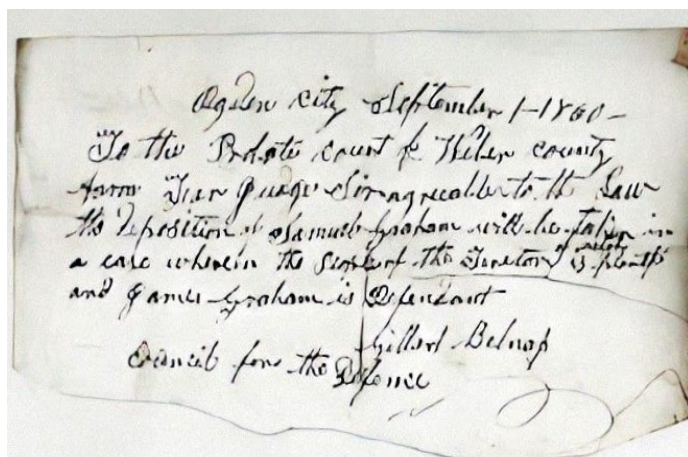 Ogden City September 1 - 1860 -
To the Probate Court of Weber County
Aaron Farr Judge Sir agreeable to the Law
the deposition of Samuel Graham will be taken in
a case wherein the of the of Utah is plentif
and James Graham is Defendant
Gilbert Belnap
Council fore the Defence